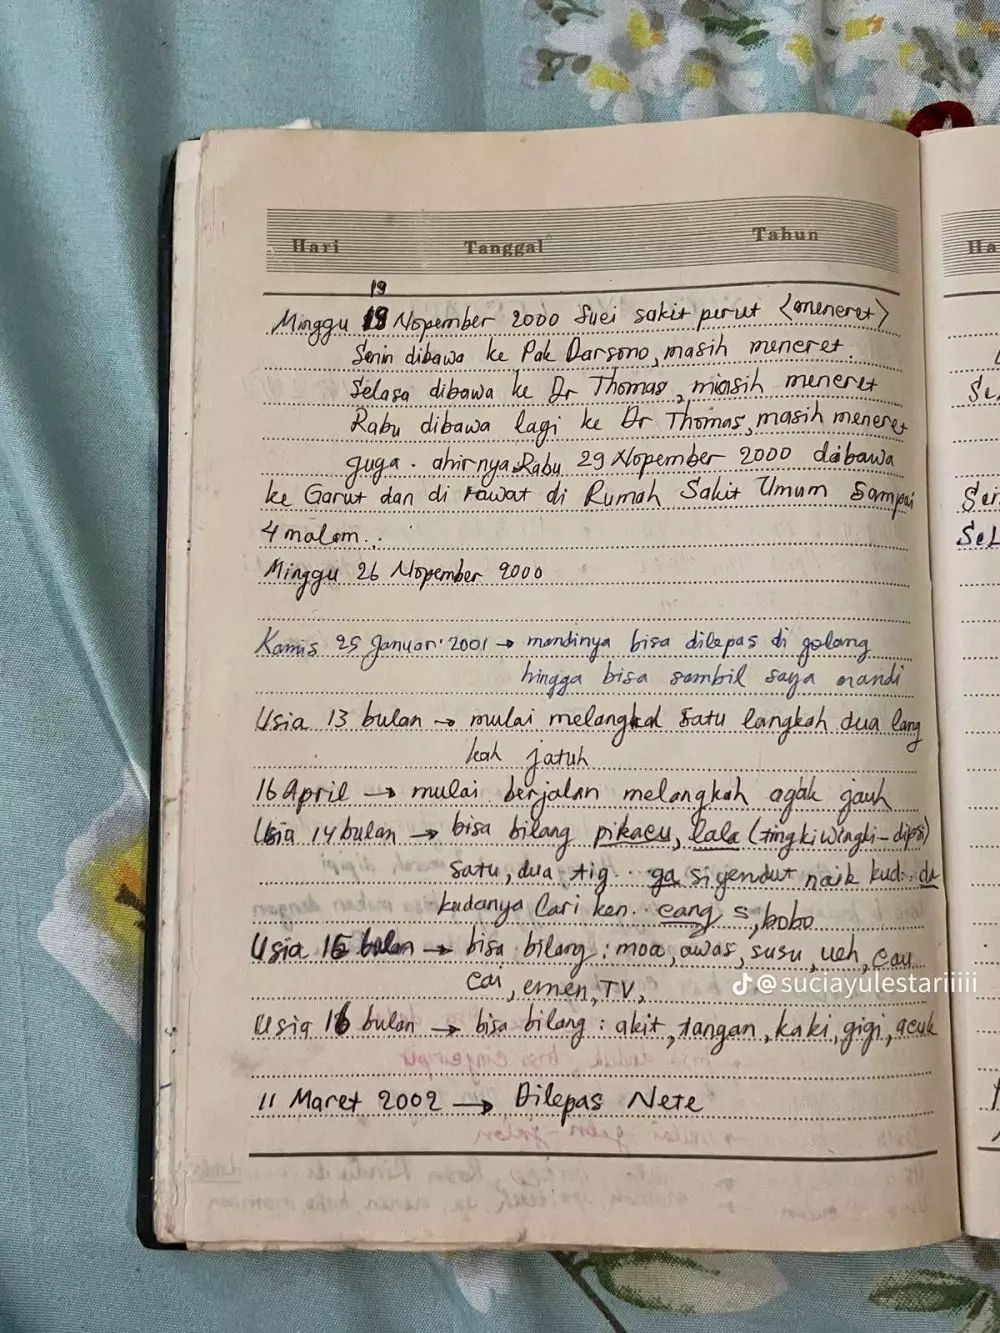 Hari Tanggal Tahun
19
Minggu 19 Nopember 2000 Suci sakit perut <meneret>
Senin dibawa ke Pak Darsono, masih meneret.
Selasa dibawa ke Dr Thomas, masih meneret
Rabu dibawa lagi ke Dr Thomas, masih meneret
guga. ahirnya Rabu 29 Nopember 2000 dibawa
ke Garut dan di rawat di Rumah Sakit Umum Sampai
4 malam..
Minggu 26 Nopember 2000
Kamis 25 Januari 2001 → mandinya bisa dilepas di golang
hingga bisa sambil saya mandi
Usia 13 bulan → mulai melangkah satu langkah dua lang
kah jatuh
16 April → mulai berjalan melangkah agak jauh
Usia 14 bulan → bisa bilang pikacu, lala (tingkiwingki-dipsi)
satu, dua, tig.. ga si gendut naik kud.. da
kudanya lari ken.. cang s, bobo
Usia 15 bulan → bisa bilang : moa, awas, susu, ueh, cau
cai, emen, TV,
Usia 16 bulan → bisa bilang : akit, tangan, kaki, gigi, acuk
11 Maret 2002 → Dilepas Nete
Ha
Sel
@suciayulestariiiii